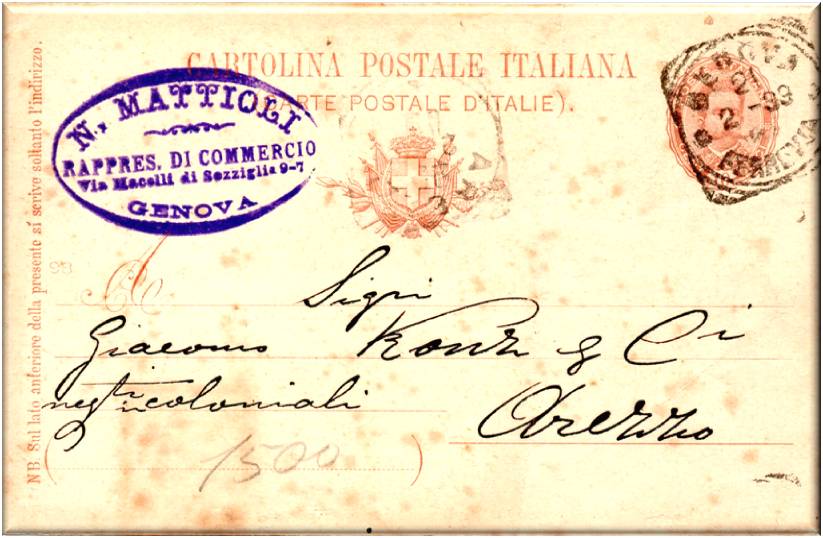 CARTOLINA POSTALE ITALIANA
(CARTE POSTALE D'ITALIE).
N. MATTIOLI
RAPPRES. DI COMMERCIO
Via Macelli di Sozziglia 9-7
GENOVA
GENOVA
FERROVIA
NB. Sul lato anteriore della presente si scrive soltanto l'indirizzo.
98
Sigri
Giacomo Konz & Ci
negti in coloniali
Arezzo
1500